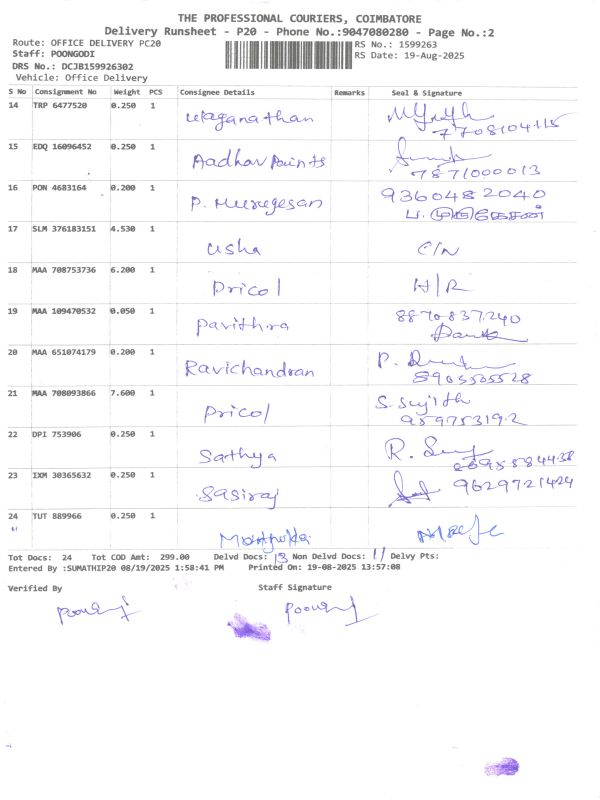 THE PROFESSIONAL COURIERS, COIMBATORE
Delivery Runsheet - P20 - Phone No.:9047080280 - Page No.:2
Route: OFFICE DELIVERY PC20 RS No.: 1599263
Staff: POONGODI RS Date: 19-Aug-2025
DRS No.: DCJB159926302
Vehicle: Office Delivery
S No Consignment No Weight PCS Consignee Details Remarks Seal & Signature
14 TRP 6477520 0.250 1
7708104115
15 EDQ 16096452 0.250 1 Aadhav Paints
7871000013
16 PON 4683164 0.200 1 P. Murugesan 9360482040
ப. முருகேசன்
17 SLM 376183151 4.530 1 Usha C/N
18 MAA 708753736 6.200 1 Pricol H/R
19 MAA 109470532 0.050 1 Pavithra 8870837240
20 MAA 651074179 0.200 1 Ravichandran
8905505528
21 MAA 708093866 7.600 1 Pricol S. Sujith
22 DPI 753906 0.250 1 Sathya
23 IXM 30365632 0.250 1 Sasiraj 9629721424
24 TUT 889966 0.250 1
Tot Docs: 24 Tot COD Amt: 299.00 Delvd Docs: 13 Non Delvd Docs: 11 Delvy Pts:
Entered By :SUMATHIP20 08/19/2025 1:58:41 PM Printed On: 19-08-2025 13:57:08
Verified By Staff Signature